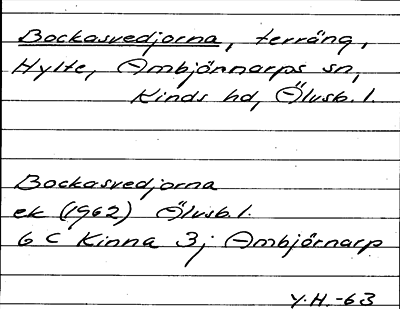 Bockasvedjorna, terräng,
Hylte, Ambjörnarps sn,
Kinds hd, Älvsb. l.
Bockasvedjorna
ek (1962) Älvsb. l.
6 C Kinna 3j Ambjörnarp
Y.H.-63